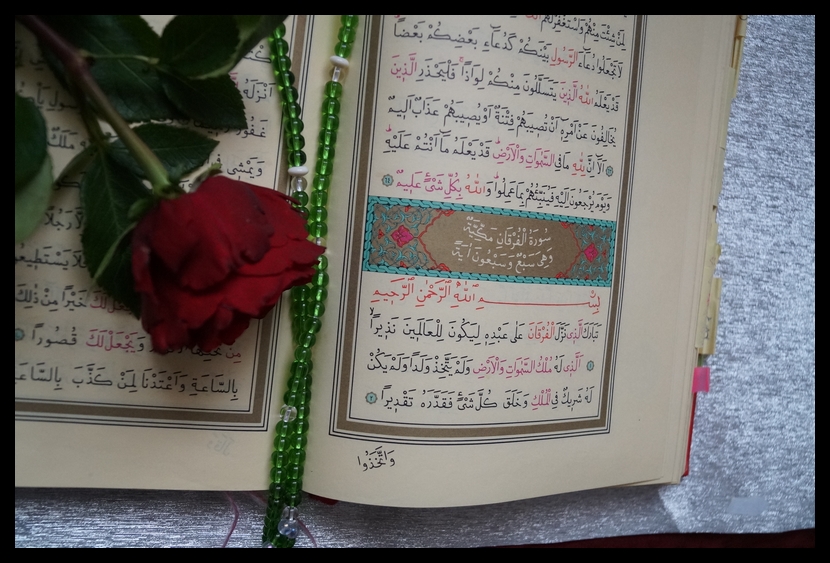 لِمَنْ شِئْتَ مِنْهُمْ وَاسْتَغْفِرْ لَهُمُ
لَا تَجْعَلُوا دُعَاءَ الرَّسُولِ بَيْنَكُمْ كَدُعَاءِ بَعْضِكُمْ بَعْضًا
قَدْ يَعْلَمُ اللّٰهُ الَّذِينَ يَتَسَلَّلُونَ مِنْكُمْ لِوَاذًا فَلْيَحْذَرِ الَّذِينَ
يُخَالِفُونَ عَنْ اَمْرِهِ اَنْ تُصِيبَهُمْ فِتْنَةٌ اَوْ يُصِيبَهُمْ عَذَابٌ اَلِيمٌ
اَلَا اِنَّ لِلّٰهِ مَا فِي السَّمٰوَاتِ وَالْاَرْضِ قَدْ يَعْلَمُ مَا اَنْتُمْ عَلَيْهِ
وَيَوْمَ يُرْجَعُونَ اِلَيْهِ فَيُنَبِّئُهُمْ بِمَا عَمِلُوا وَاللّٰهُ بِكُلِّ شَيْءٍ عَلِيمٌ
سُورَةُ الْفُرْقَانِ مَكِّيَّةٌ
وَهِيَ سَبْعٌ وَسَبْعُونَ اٰيَةً
بِسْمِ اللّٰهِ الرَّحْمٰنِ الرَّحِيمِ
تَبَارَكَ الَّذِي نَزَّلَ الْفُرْقَانَ عَلٰى عَبْدِهِ لِيَكُونَ لِلْعَالَمِينَ نَذِيرًا
اَلَّذِي لَهُ مُلْكُ السَّمٰوَاتِ وَالْاَرْضِ وَلَمْ يَتَّخِذْ وَلَدًا وَلَمْ يَكُنْ
لَهُ شَرِيكٌ فِي الْمُلْكِ وَخَلَقَ كُلَّ شَيْءٍ فَقَدَّرَهُ تَقْدِيرًا
وَاتَّخَذُوا
اَنْزَلَهُ
غَفُورًا
وَيَمْشِي
خَيْرًا مِنْ ذٰلِكَ
وَيَجْعَلْ لَكَ قُصُورًا
بِالسَّاعَةِ وَاَعْتَدْنَا لِمَنْ كَذَّبَ بِالسَّاعَةِ